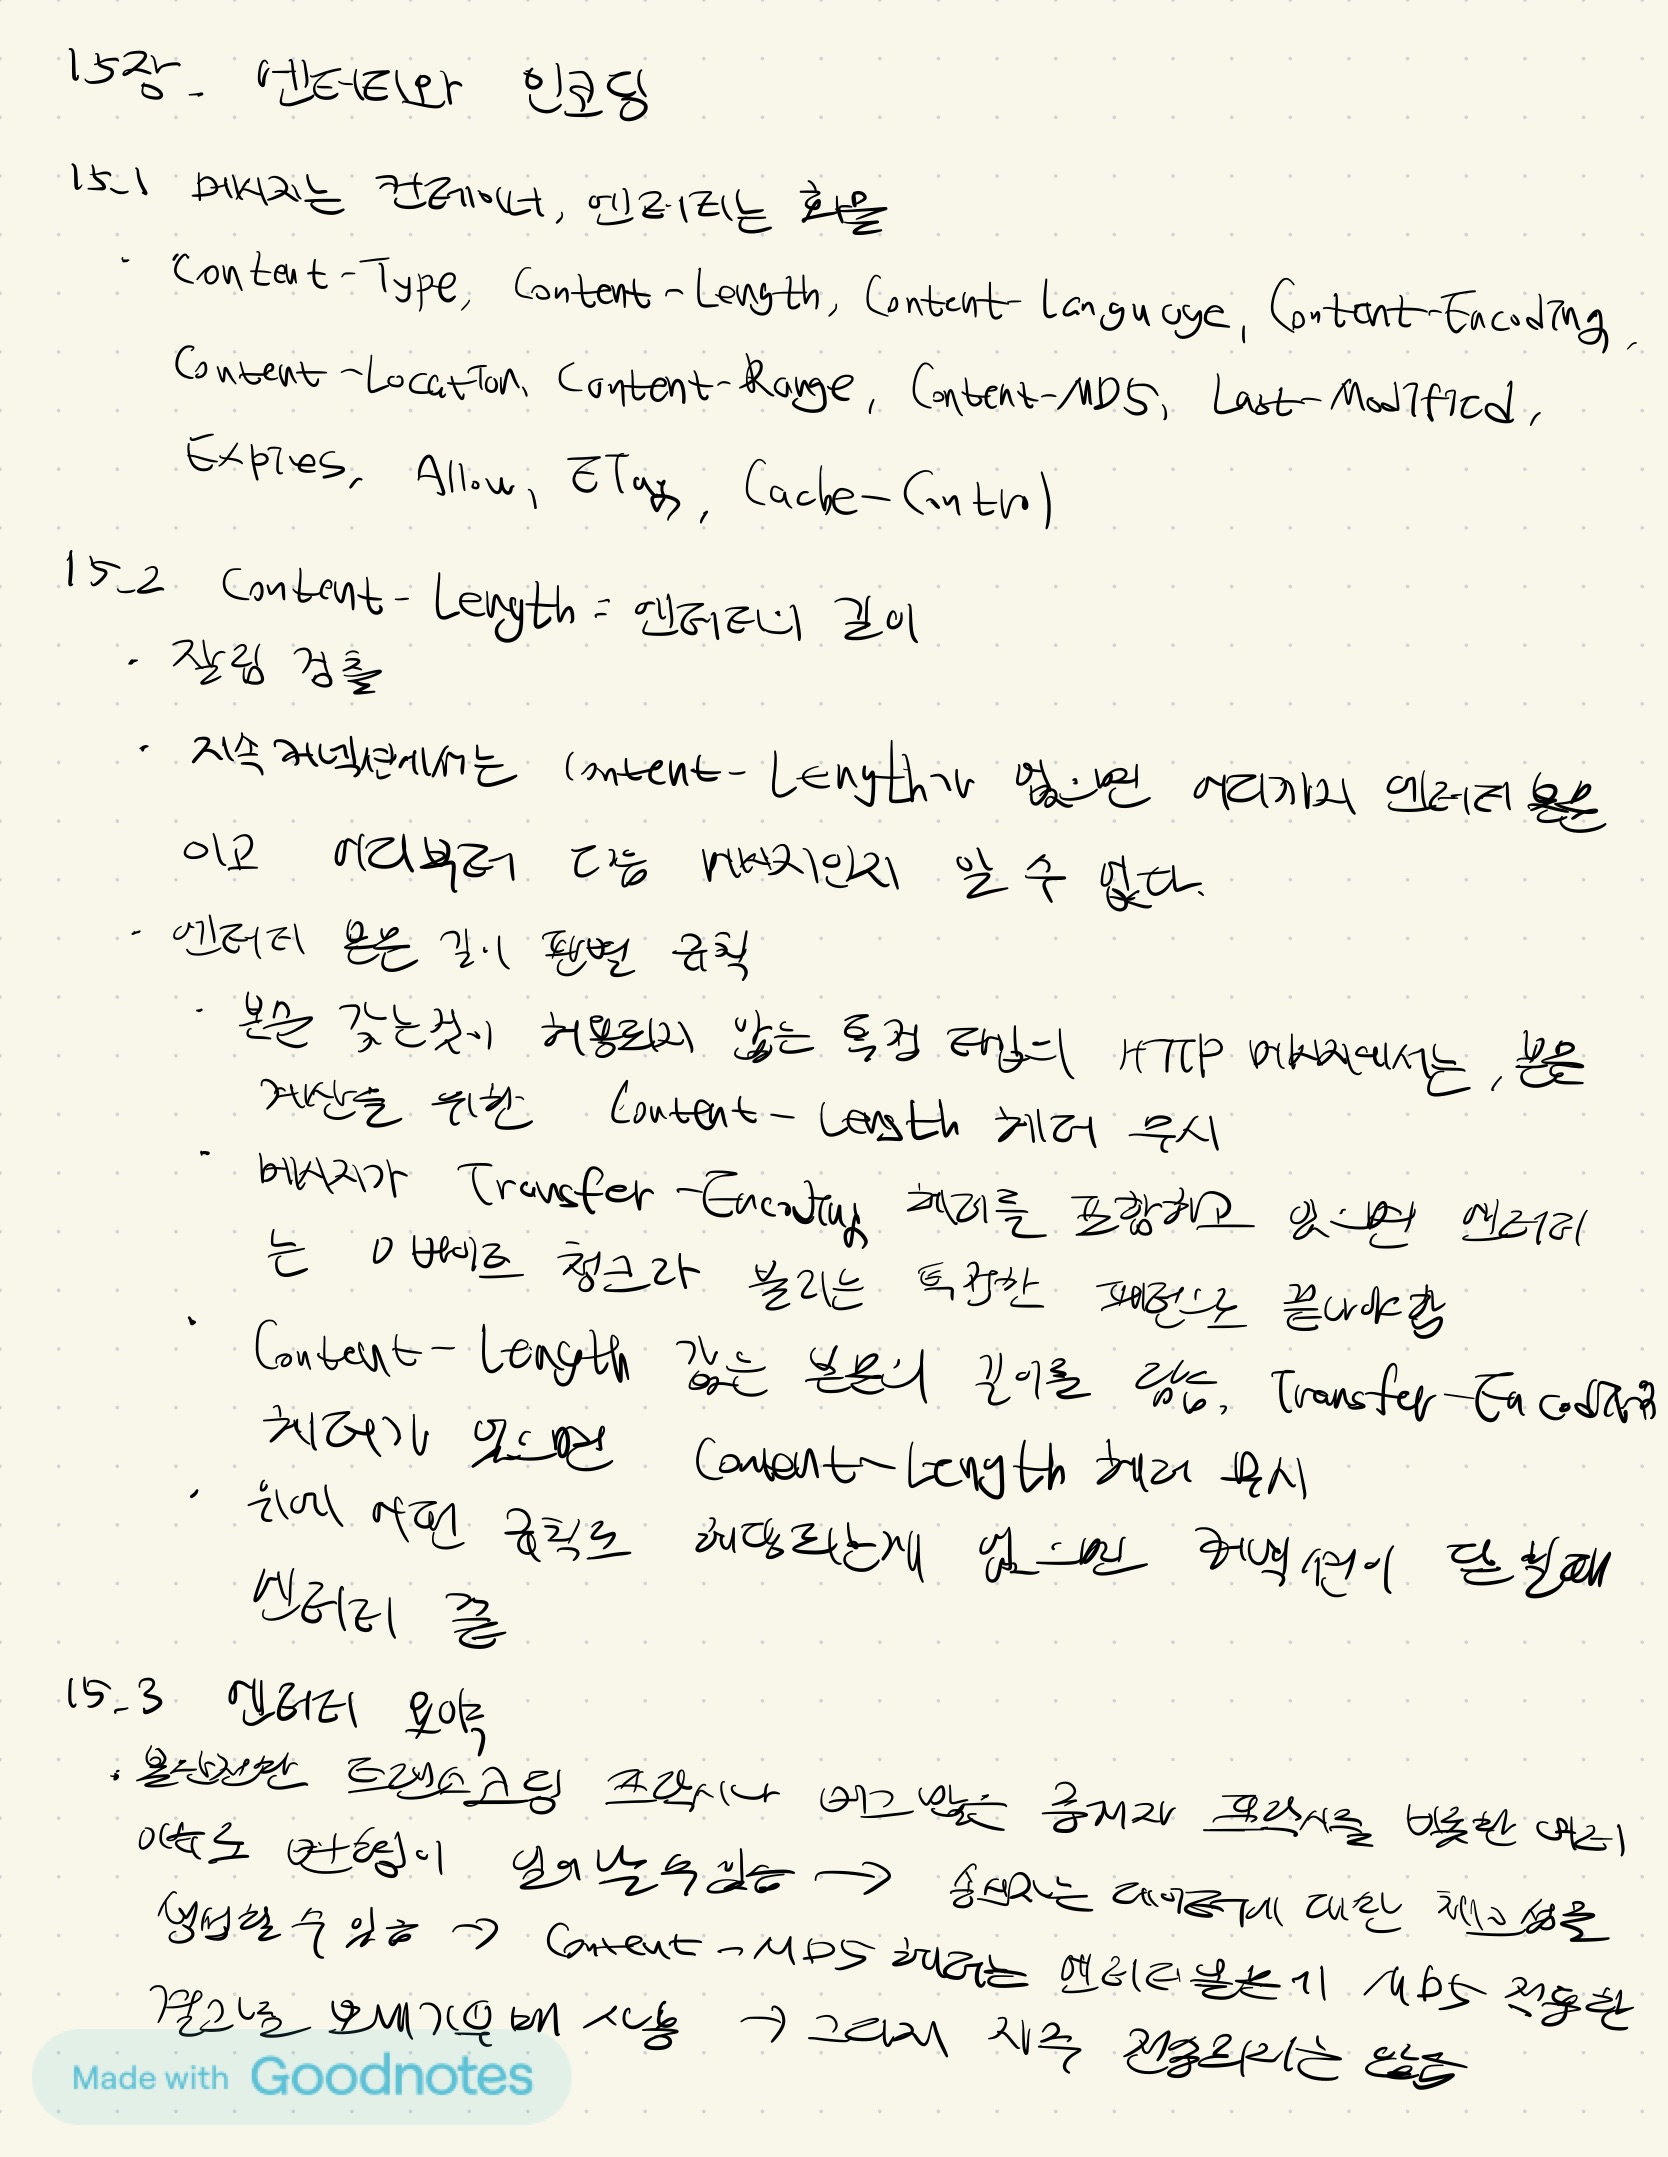 15장. 엔터티와 인코딩
15.1 메시지는 컨테이너, 엔터티는 화물
· Content-Type, Content-Length, Content-Language, Content-Encoding,
Content-Location, Content-Range, Content-MD5, Last-Modified,
Expires, Allow, ETag, Cache-Control
15.2 Content-Length = 엔터티의 길이
· 잘림 검출
· 지속 커넥션에서는 Content-Length가 없으면 어디까지 엔터티 본문
이고 어디부터 다음 메시지인지 알 수 없다.
· 엔터티 본문 길이 판별 규칙
· 본문을 갖는것이 허용되지 않는 특정 타입의 HTTP 메시지에서는, 본문
계산을 위한 Content-Length 헤더 무시
· 메시지가 Transfer-Encoding 헤더를 포함하고 있으면 엔터티
는 0 바이트 청크라 불리는 특정한 패턴으로 끝나야함
· Content-Length 값은 본문의 길이를 담음, Transfer-Encoding
헤더가 있으면 Content-Length 헤더 무시
· 위에 어떤 규칙도 해당되는게 없으면 커넥션이 닫힐때
엔터티 끝
15.3 엔터티 요약
· 불완전한 트랜스코딩 프락시나 버그 많은 중개자 프락시를 비롯한 여러
이유로 변형이 일어날 수 있음 → 송신자는 데이터에 대한 체크섬을
생성할 수 있음 → Content-MD5 헤더는 엔터티 본문에 MD5 적용한
결과를 보내기 위해 사용 → 그러나 자주 전송되지는 않음
Made with Goodnotes